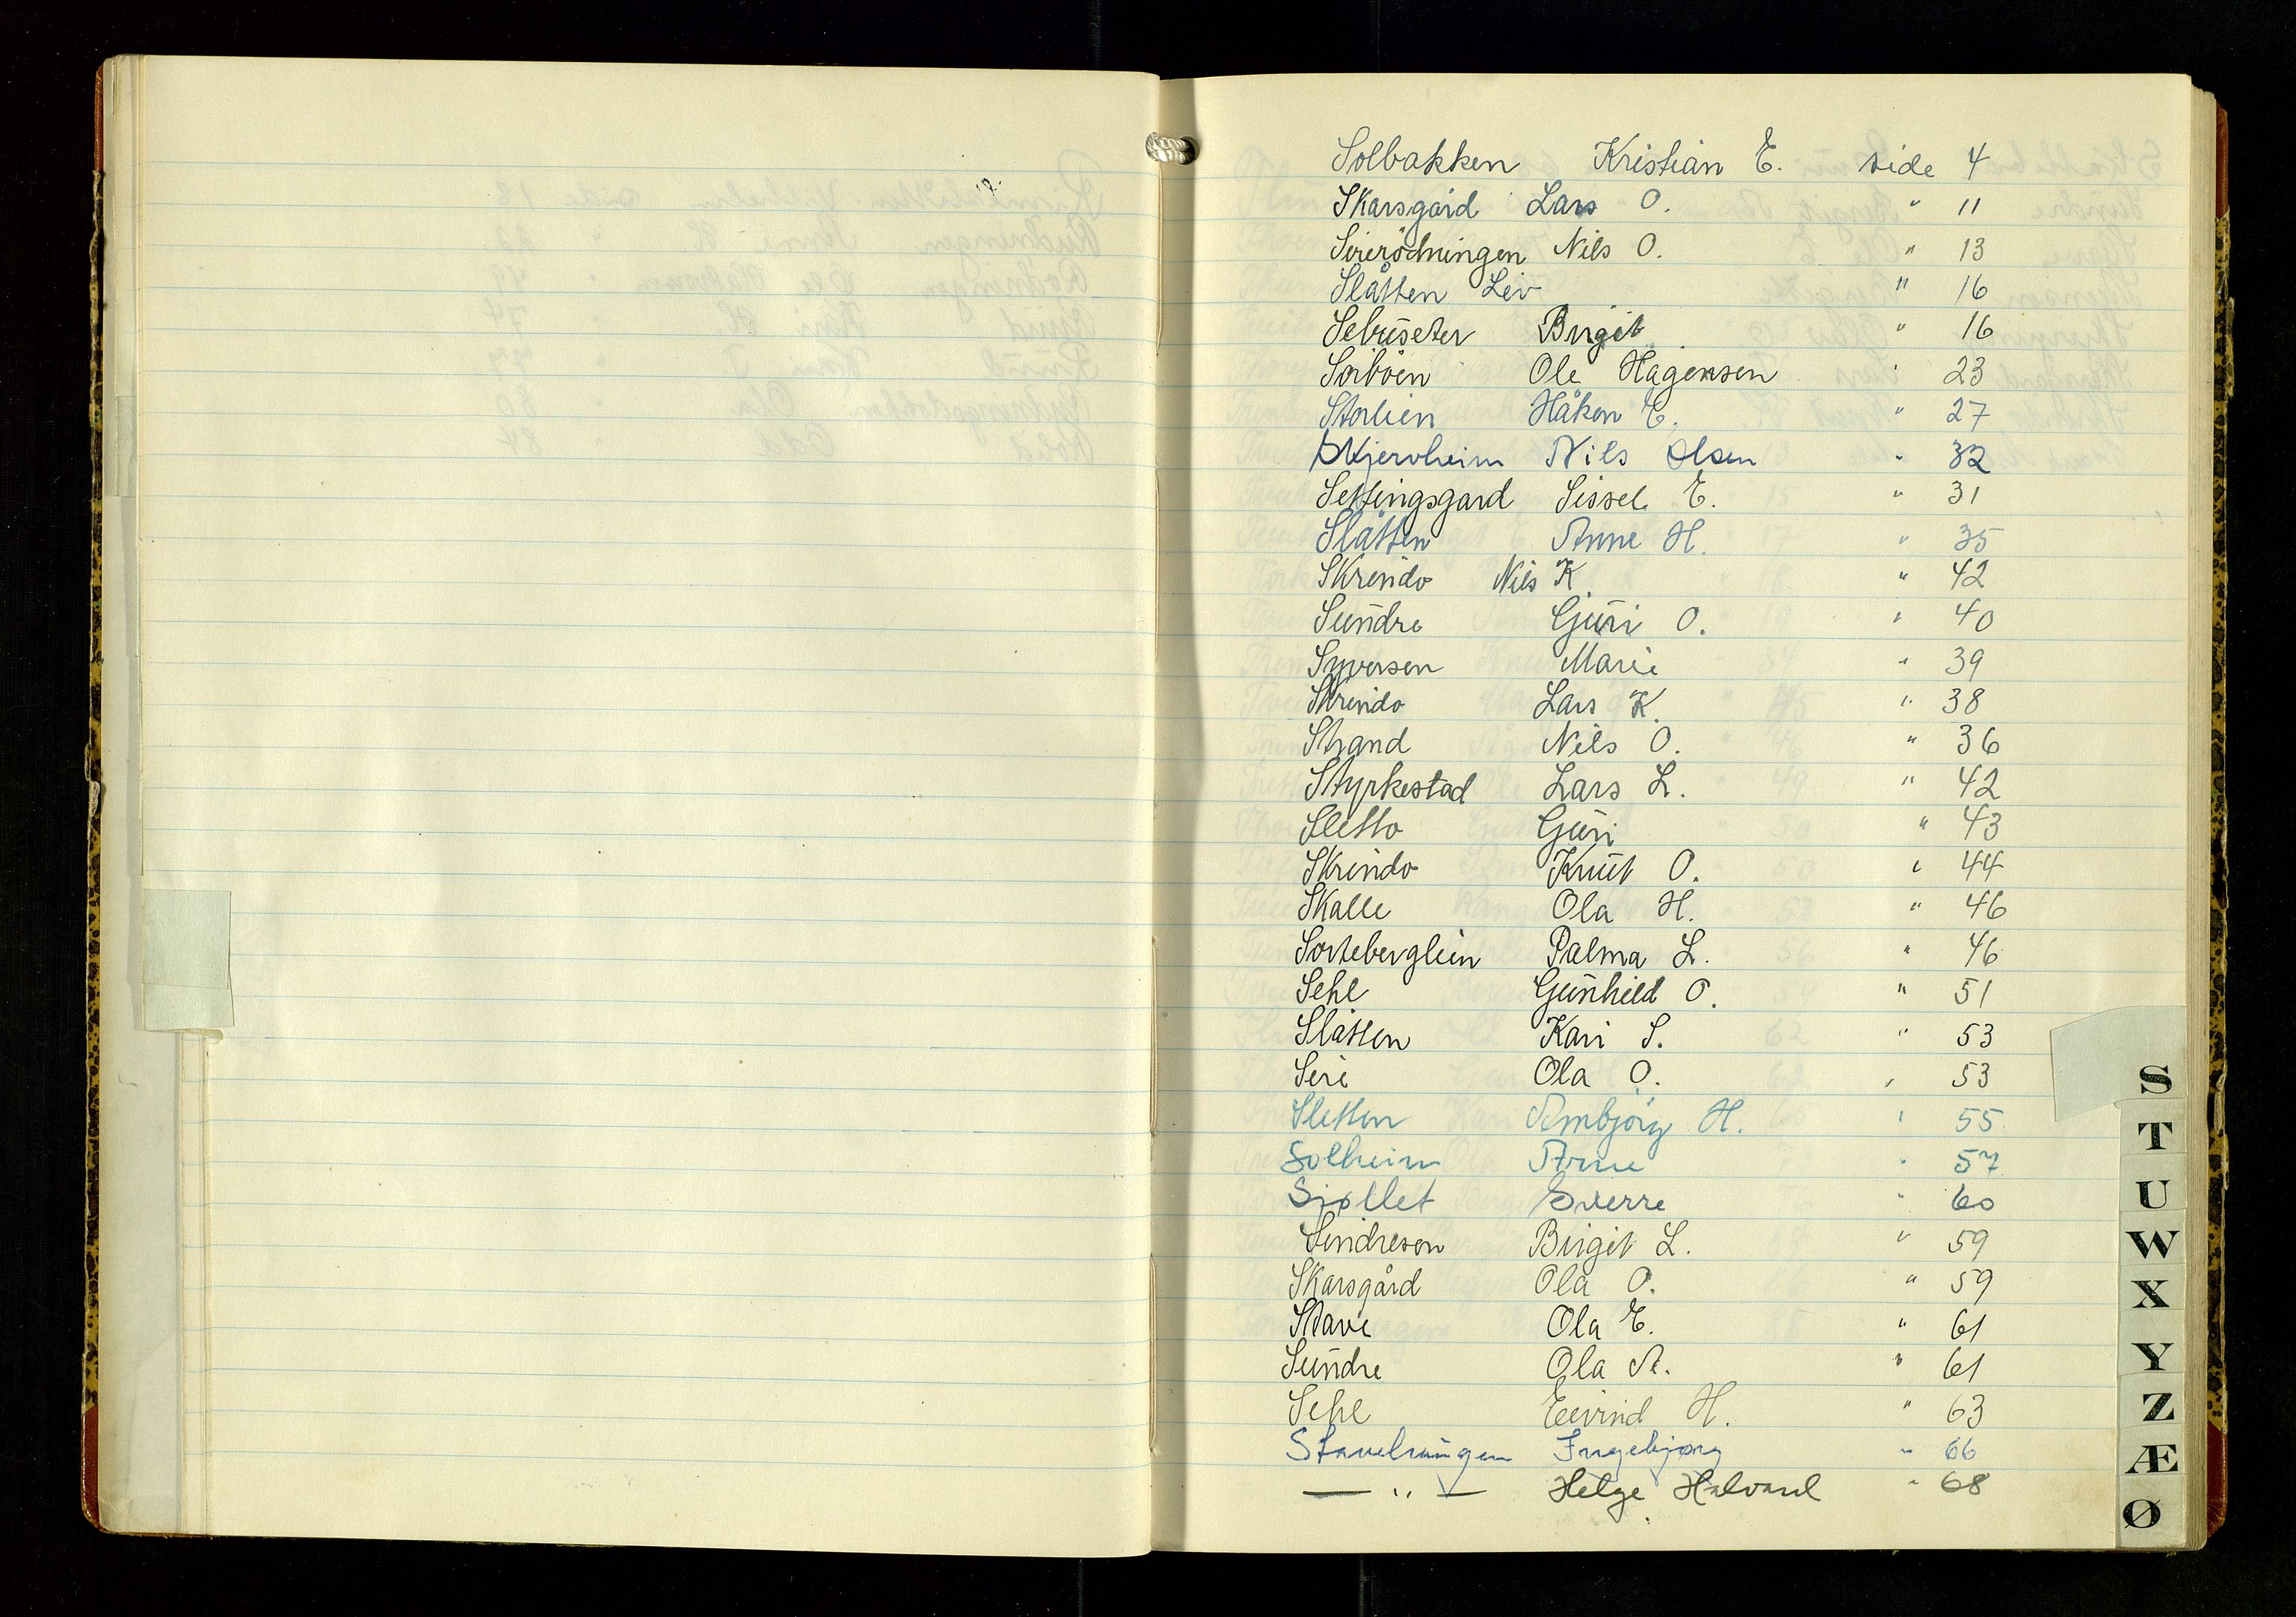 Solbakken Kristian E. side 4
Skarsgård Lars O. " 11
Sirerödningen Nils O. " 13
Slåtten Liv " 16
Sebuseter Birgit " 16
Sorböen Ole Hagensen " 23
Storlien Håkon E. " 27
Skjervheim Nils Olsen " 32
Settingsgard Sissel E. " 31
Slåtten Anne H. " 35
Skrindo Nils K " 42
Sundre Guri O. " 40
Syversen Marie " 39
Skrindo Lars K. " 38
Strand Nils O. " 36
Styrkestad Lars L. " 42
Sletto Guri " 43
Skrindo Knut O. " 44
Skalle Ola H. " 46
Sorteberglien Palma L. " 46
Sehl Gunhild O. " 51
Slåtten Kari S. " 53
Sire Ola O. " 53
Sletten Ambjörg H. " 55
Solheim Arne " 57
Sjøllet Sverre " 60
Sindresen Birgit L. " 59
Skarsgård Ola O. " 59
Skave Ola E. " 61
Sundre Ola A. " 61
Sehl Eivind H. " 63
Ingebjørg " 66
— " — Helge Halvard " 68
S
T
U
W
X
Y
Z
Æ
Ø